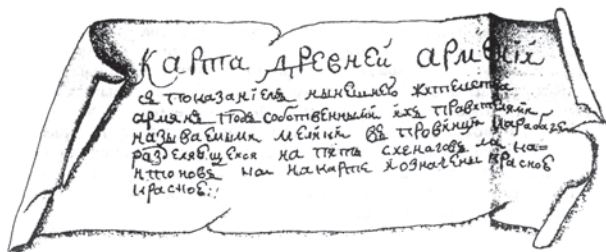 Карта древней армѣнїи
съ показанїемъ нынѣшнего жительства
армянъ подъ собственными ихъ правителями
называемыми мелики въ провинцїи карабаге
разделяющеися на пять
нтоновъ на карте означены красное
красное